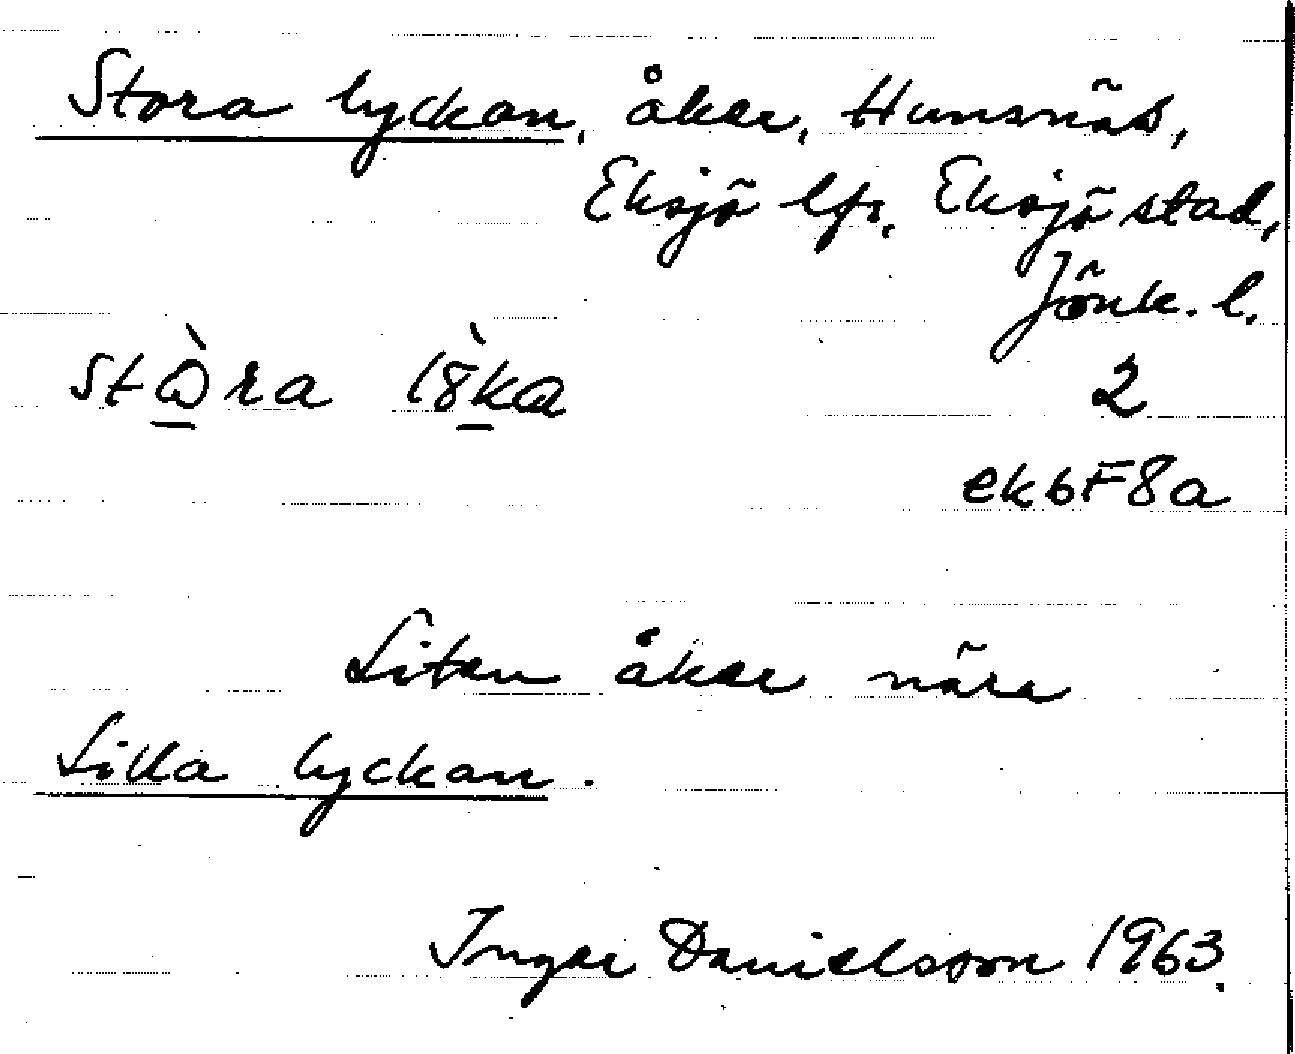 Stora lyckan, åker, Hunsnäs,
Eksjö lfs, Eksjö stad,
Jönk. l.
2
ek6F8a
Liten åker nära
Lilla lyckan.
Ingar Danielsson 1963.